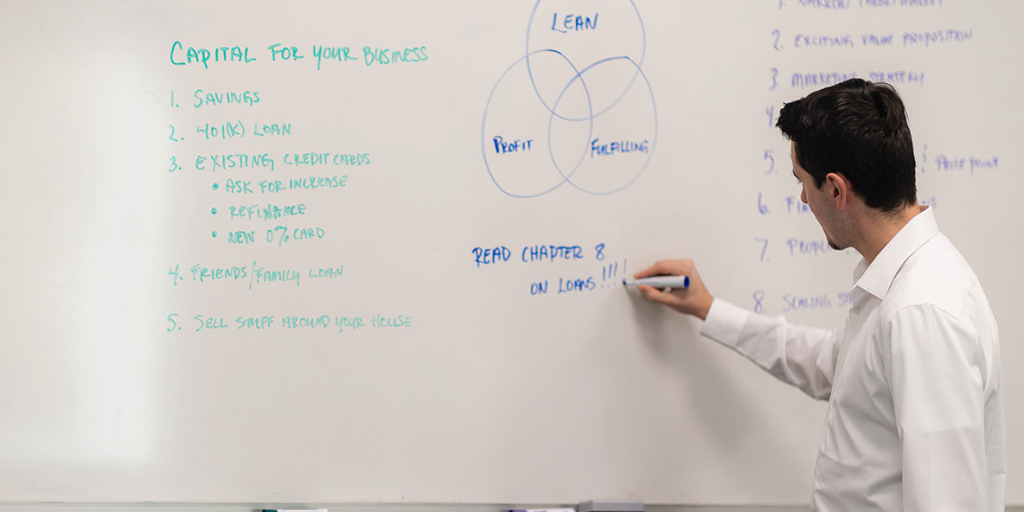 CAPITAL FOR YOUR BUSINESS
1. SAVINGS
2. 401(K) LOAN
3. EXISTING CREDIT CARDS
• ASK FOR INCREASE
• REFINANCE
• NEW 0% CARD
4. FRIENDS/FAMILY LOAN
5. SELL STUFF AROUND YOUR HOUSE
LEAN
PROFIT
FULFILLING
READ CHAPTER 8
ON LOANS!!!!
1. NARROW TARGET MARKET
2. EXCITING VALUE PROPOSITION
3. MARKETING STRATEGY
4.
5. PRICE POINT
6.
7.
8. SCALING